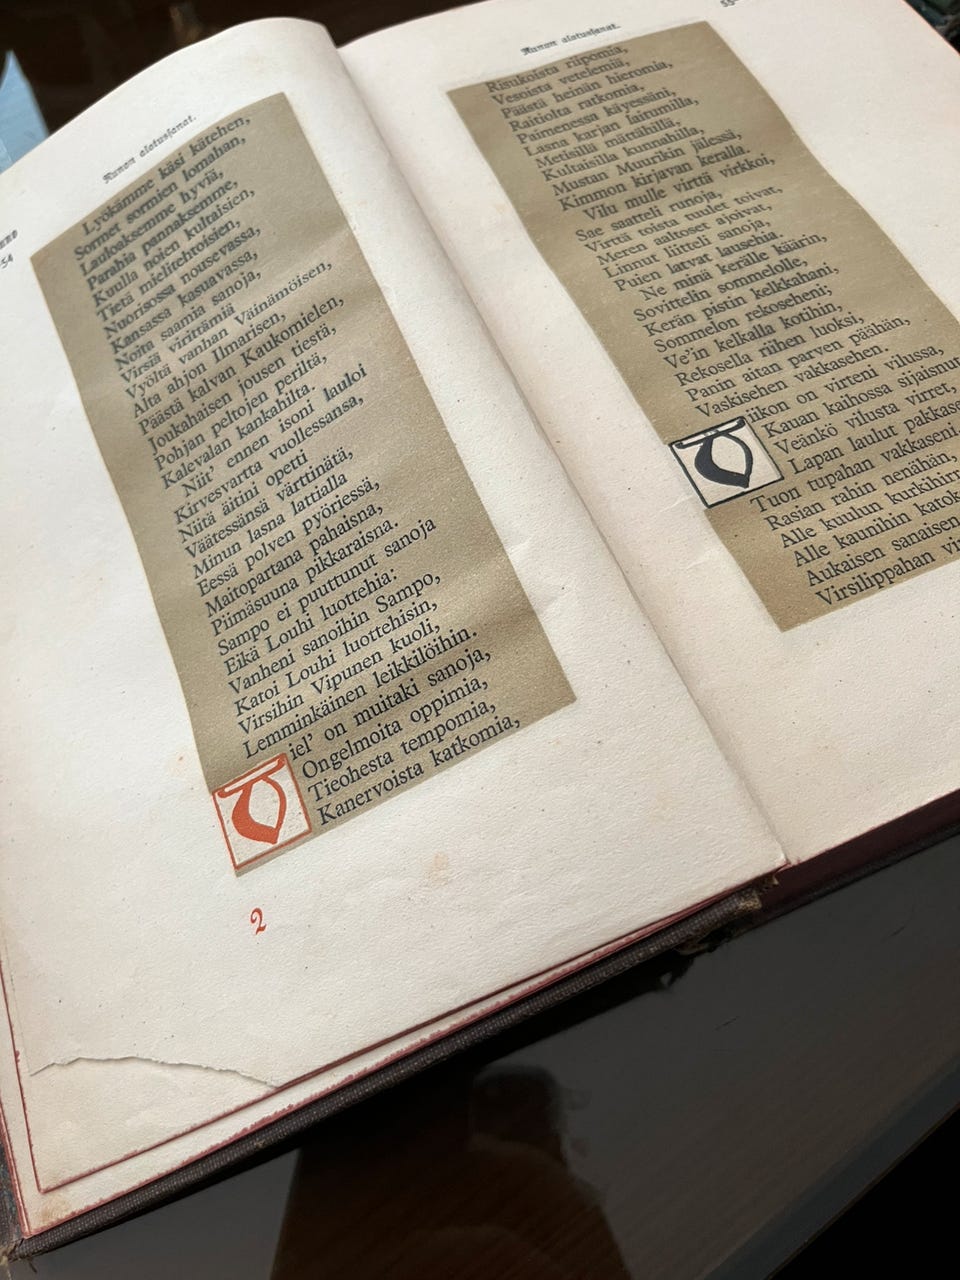 Runon alotussanat.
Lyökämme käsi kätehen,
Sormet sormien lomahan,
Lauloaksemme hyviä,
Parahia pannaksemme,
Kuulla noien kultaisien,
Tietä mielitehtoisien,
Nuorisossa nousevassa,
Kansassa kasuavassa,
Noita saamia sanoja,
Virsiä virittämiä
Vyöltä vanhan Väinämöisen,
Alta ahjon Ilmarisen,
Päästä kalvan Kaukomielen,
Joukahaisen jousen tiestä,
Pohjan peltojen periltä,
Kalevalan kankahilta.
Niit' ennen isoni lauloi
Kirvesvartta vuollessansa,
Niitä äitini opetti
Väätessänsä värttinätä,
Minun lasna lattialla
Eessä polven pyöriessä,
Maitopartana pahaisna,
Piimäsuuna pikkaraisna.
Sampo ei puuttunut sanoja
Eikä Louhi luottehia:
Vanheni sanoihin Sampo,
Katoi Louhi luottehisin,
Virsihin Vipunen kuoli,
Lemminkäinen leikkilöihin.
Viel' on muitaki sanoja,
Ongelmoita oppimia,
Tieohesta tempomia,
Kanervoista katkomia,
2
Runon alotussanat.
Risukoista riipomia,
Vesoista vetelemiä,
Päästä heinän hieromia,
Raitiolta ratkomia,
Paimenessa käyessäni,
Lasna karjan laitumilla,
Metisillä mättähillä,
Kultaisilla kunnahilla,
Mustan Muurikin jälessä,
Kimmon kirjavan keralla.
Vilu mulle virttä virkkoi,
Sae saatteli runoja,
Virttä toista tuulet toivat,
Meren aaltoset ajoivat,
Linnut liitteli sanoja,
Puien latvat lausehia.
Ne minä kerälle käärin,
Sovittelin sommelolle,
Kerän pistin kelkkahani,
Sommelon rekoseheni;
Ve'in kelkalla kotihin,
Rekosella riihen luoksi,
Panin aitan parven päähän,
Vaskisehen vakkasehen.
Viikon on virteni vilussa,
Kauan kaihossa sijaisnut
Veänkö vilusta virret,
Lapan laulut pakkase
Tuon tupahan vakkaseni
Rasian rahin nenähän,
Alle kuulun kurkihirr
Alle kaunihin katok
Aukaisen sanaisen
Virsilippahan vi